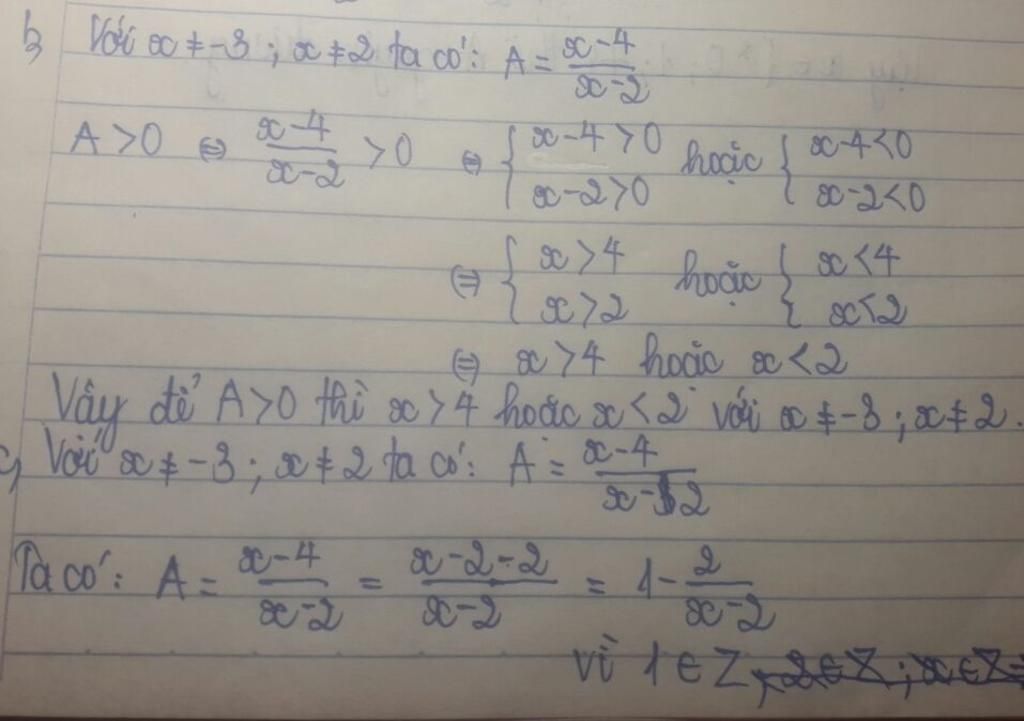 b, Với x ≠ -3 ; x ≠ 2 ta có: A = \frac{x-4}{x-2}
A > 0 ⇔ \frac{x-4}{x-2} > 0 ⇔ { x-4>0 ; x-2>0 hoặc { x-4<0 ; x-2<0
⇔ { x>4 ; x>2 hoặc { x<4 ; x<2
⇔ x>4 hoặc x<2
Vậy để A>0 thì x>4 hoặc x<2 với x ≠ -3 ; x ≠ 2.
c, Với x ≠ -3 ; x ≠ 2 ta có: A = \frac{x-4}{x-2}
Ta có: A = \frac{x-4}{x-2} = \frac{x-2-2}{x-2} = 1 - \frac{2}{x-2}
vì 1 ∈ Z